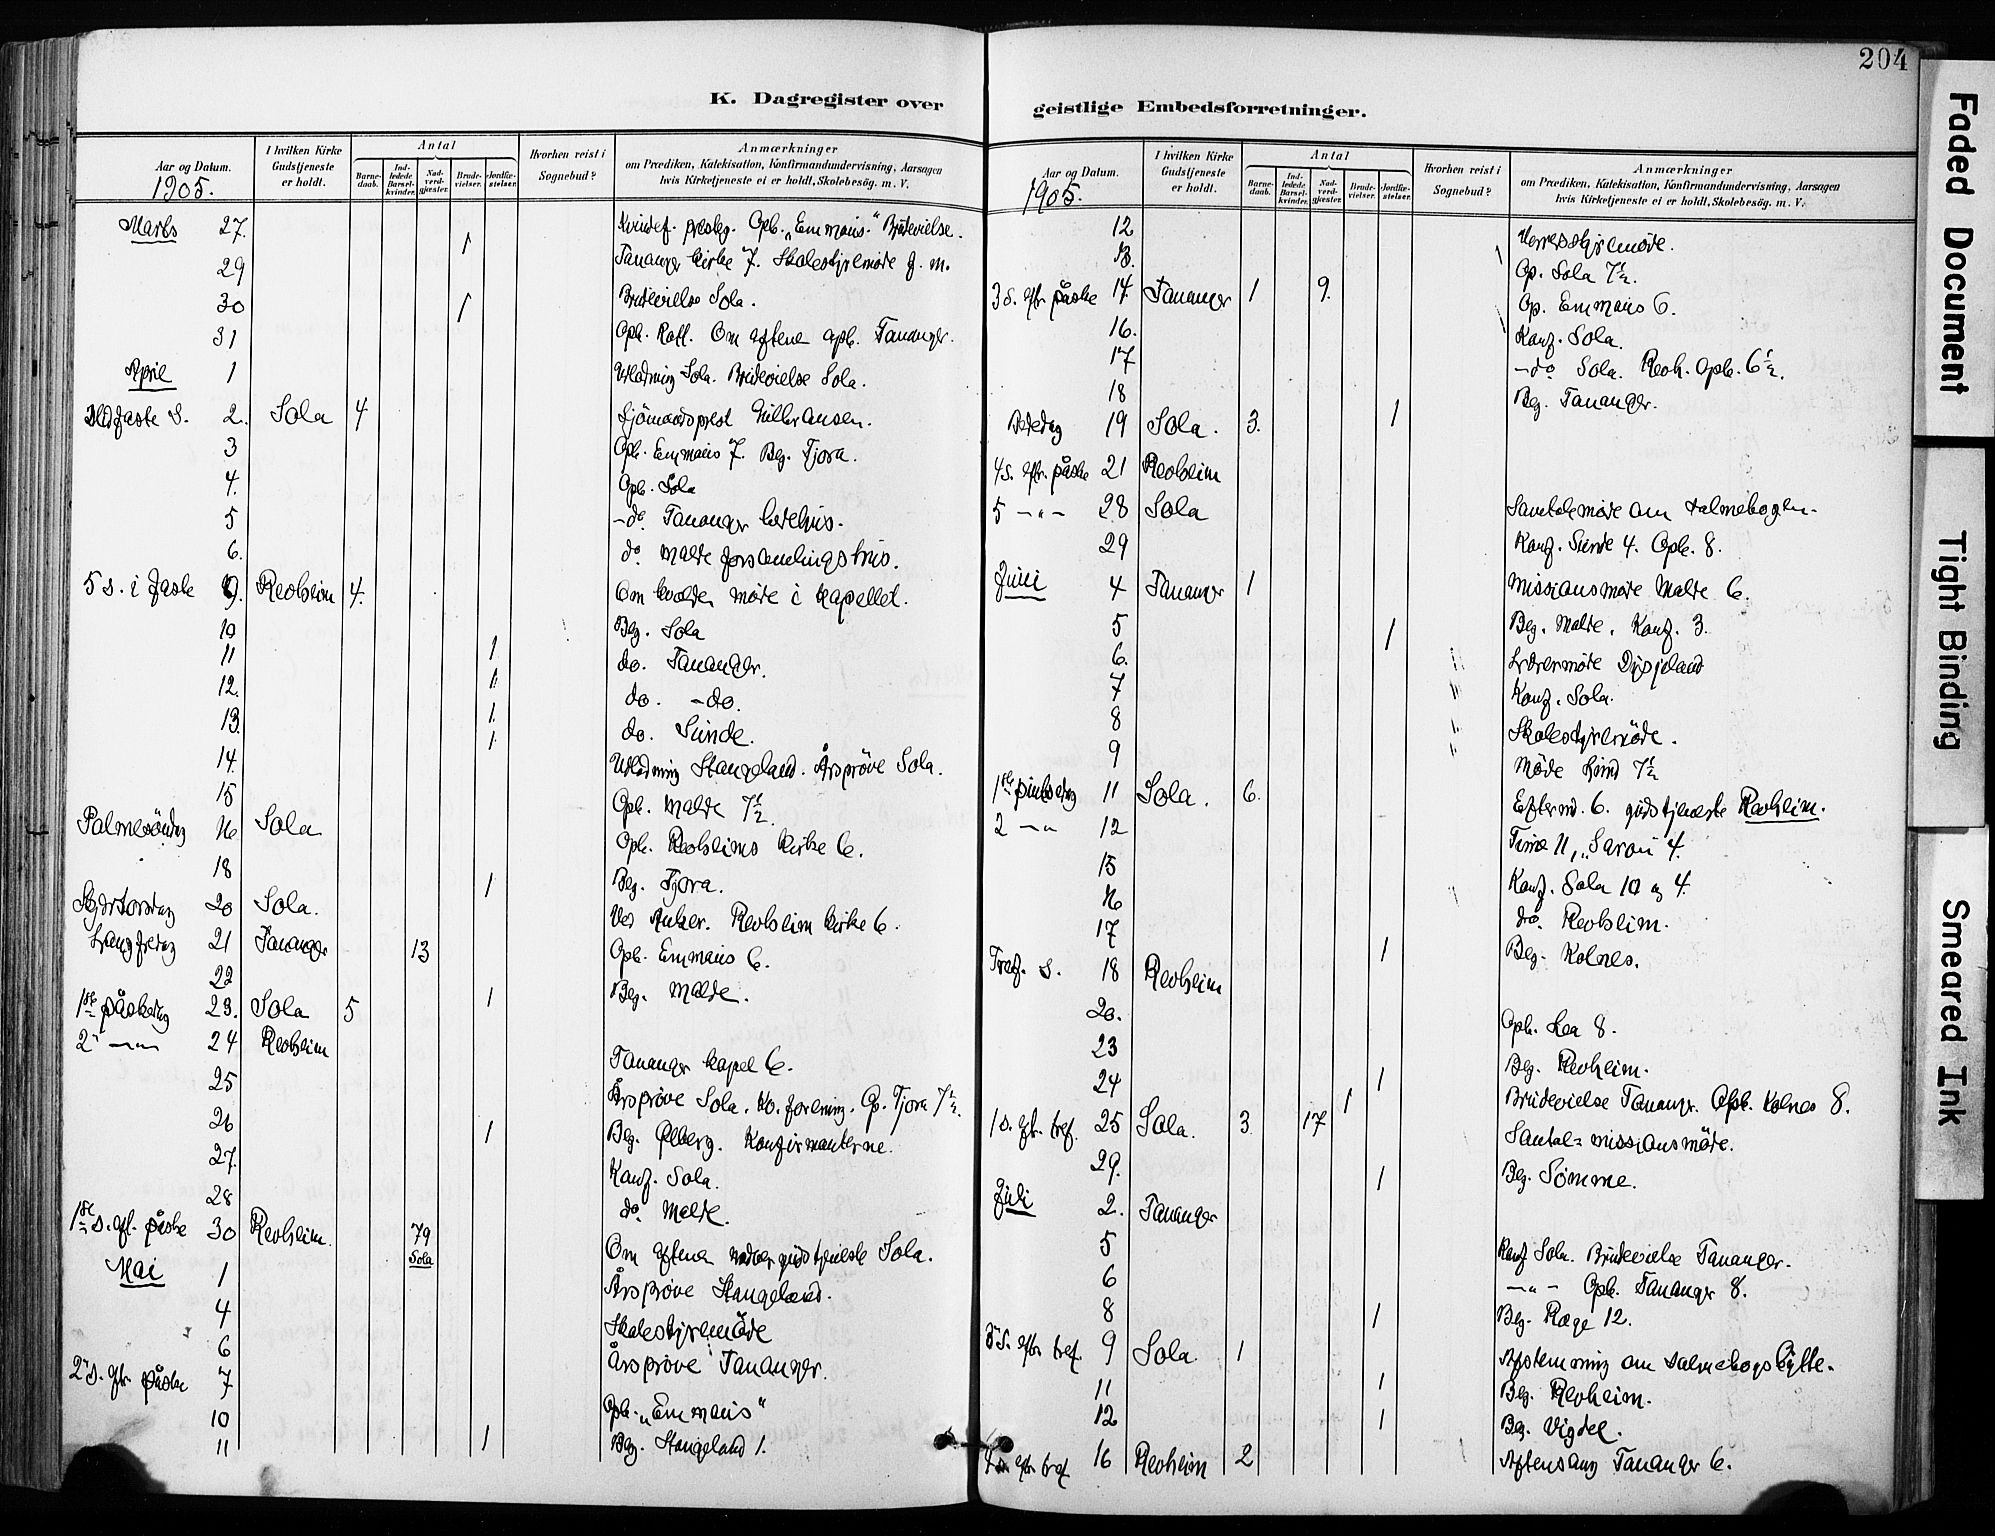 204
K. Dagregister over
Aar og Datum.
I hvilken Kirke Gudstjeneste er holdt.
Antal
Barne-daab.
Ind-ledede Barsel-kvinder.
Nad-verd-gjester.
Brude-vielser.
Jordfæ-stelser.
Hvorhen reist i Sognebud?
Anmærkninger
om Prædiken, Katekisation, Konfirmandundervisning, Aarsagen
hvis Kirketjeneste ei er holdt, Skolebesög. m. V.
1905.
Marts 27. 1 Kvindef. Opb. „Emmaus". Brudevielse.
29 Tananger kirke 7. Skolestyremøde
30 1 Brudevielse Sola.
31 Opb. Om aftenen opb. Tananger.
April 1 Sola. Brudevielse Sola.
Midfaste S. 2. Sola 4 Sjömandsprest
3 Opb. Emmaus 7. Beg. Tjora.
4. Opb. Sola
5 -do. Tananger bedehus.
6. do. Malde forsamlingshus.
5 s. i faste 9. Revheim 4. Om kvelden møde i kapellet.
10 Beg. Sola
11 1 do. Tananger.
12. 1 do. -do.
13. 1 do. Sunde.
14. 1 Stangeland. Årsprøve Sola.
15 Opb. Malde 7½.
Palmesöndag 16 Sola Opb. Revheims kirke 6.
18 1 Beg. Tjora.
Skjærtorsdag 20 Sola. Revheim kirke 6.
Langfredag 21 Tananger 13 Opb. Emmaus 6.
22 Beg. Malde.
1ste påskedag 23. Sola 5 1
2 -"- 24 Revheim Tananger kapel 6.
25 Årsprøve Sola. Kv. forening. Op. Tjora 7½.
26 1 Beg. Ølberg. Konfirmanterne.
27. Konf. Sola.
28 do. Malde.
1ste s. eft. påske 30 Revheim. 79 Sola Om aftenen gudstjeneste Sola.
Mai 1 Årsprøve Stangeland.
4 Skolestyremøde
6 Årsprøve Tananger.
2 s. eft. påske 7
10 Opb. „Emmaus"
11 1 Beg. Stangeland 1.
geistlige Embedsforretninger.
Aar og Datum.
I hvilken Kirke Gudstjeneste er holdt.
Antal
Barne-daab.
Ind-ledede Barsel-kvinder.
Nad-verd-gjester.
Brude-vielser.
Jordfæ-stelser.
Hvorhen reist i Sognebud?
Anmærkninger
om Prædiken, Katekisation, Konfirmandundervisning, Aarsagen
hvis Kirketjeneste ei er holdt, Skolebesög. m. V.
1905.
12 Herredsstyremøde.
13. Op. Sola 7½.
3 s. eft. påske 14. Tananger 1 9. Op. Emmaus 6.
16. Konf. Sola.
17 -do Sola. Revh. Opb. 6½.
18 Beg. Tananger.
Bededag 19 Sola. 3. 1
4 s. eft. påske 21 Revheim
5 -"- 28 Sola Samtalemøde om salmebogen.
29 Konf. Sunde 4. Opb. 8.
Juni 4 Tananger 1 Missionsmøde Malde 6.
5 1 Beg. Malde. Konf. 3.
6. Lærermøde Dysjeland
7 Konf. Sola.
8 Skolestyremøde.
9 Møde Lund 7½
1ste pinsedag 11 Sola. 6. Efterm. 6. gudstjeneste Revheim.
2 -"- 12 Time 11, „Saron" 4.
15 Konf. Sola 10 og 4.
16 do. Revheim.
17 1 Beg. Kolnes.
Tref. S. 18 Revheim
20. Opb. Lea 8.
23 Beg. Revheim.
24 1 1 Brudevielse Tananger. Opb. Kolnes 8.
1 s. eft. tref. 25 Sola. 3. 17 Santal=missionsmøde.
29. 1 Beg. Sømme.
Juli 2. Tananger
5 Konf Sola. Brudevielse Tananger.
6 -"- Opb. Tananger 8.
8 1 Beg. Ræge 12.
3 s. eftr tref. 9 Sola. 1 Afstemning om salmebogsbytte.
11 1 Beg. Revheim.
12 1 Beg. Vigdel.
4 s. eftr tref 16 Revheim 2 Aftensang Tananger 6.
Faded Document
Tight Binding
Smeared Ink